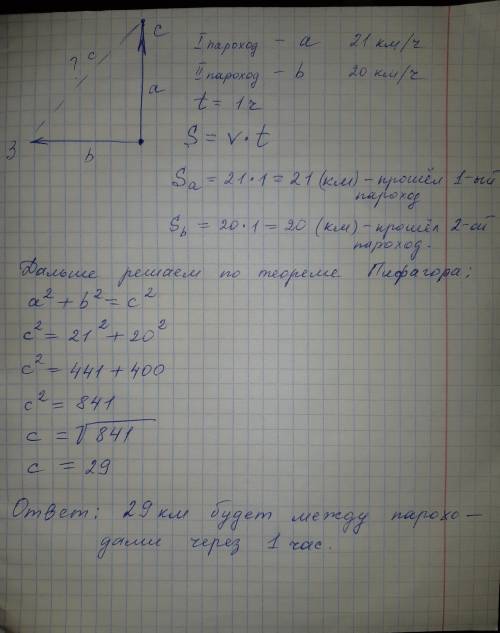 с
? c
a
З
b
I пароход – a 21 км/ч
II пароход – b 20 км/ч
t = 1 ч
S = v · t
Sa = 21 · 1 = 21 (км) – прошёл 1-ый
пароход
Sb = 20 · 1 = 20 (км) – прошёл 2-ой
пароход.
Дальше решаем по теореме Пифагора:
a² + b² = c²
c² = 21² + 20²
c² = 441 + 400
c² = 841
c = √841
c = 29
Ответ: 29 км будет между парохо–
дами через 1 час.